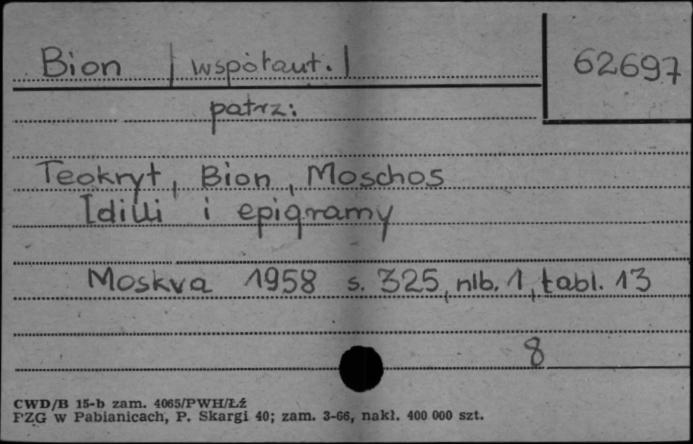 Bion | współaut. | 62697
patrz:
Teokryt, Bion, Moschos
Idilli i epigramy
Moskva 1958 s. 325, nlb. 1, tabl. 13
8
CWD/B 15-b zam. 4065/PWH/Łź
PZG w Pabianicach, P. Skargi 40; zam. 3-66, nakł. 400 000 szt.